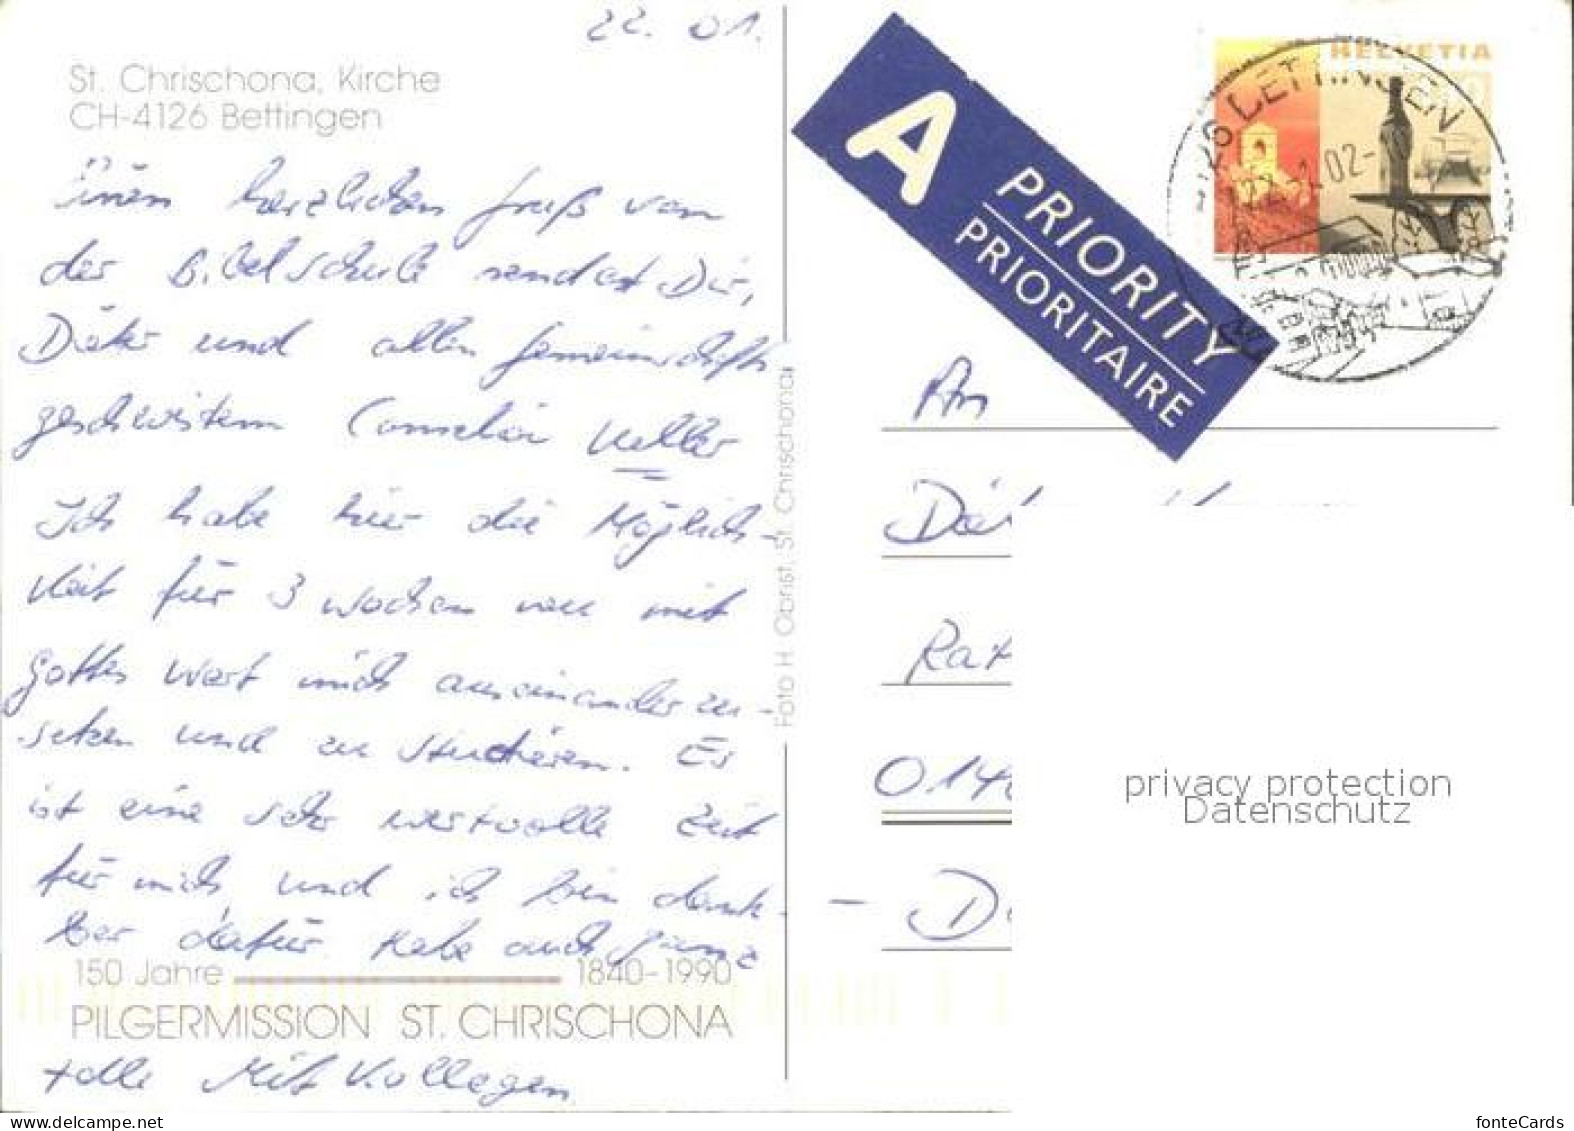 22. 01.
St. Chrischona, Kirche
CH-4126 Bettingen
Einen herzlichen Gruß von
der Bibelschule sendet Dir,
Dieter und allen Gemeinschafts
geschwistern Cornelia Keller
Ich habe hier die Möglich-
keit für 3 Wochen neu mit
Gottes Wort mich auseinander zu-
setzen und zu studieren. Es
ist eine sehr wertvolle Zeit
für mich und ich bin dank-
bar dafür. Habe auch ganz
150 Jahre 1840-1990
PILGERMISSION ST. CHRISCHONA
tolle Mit Kollegen
Foto H. Obrist, St. Chrischona
A PRIORITY
PRIORITAIRE
HELVETIA
BETTINGEN
22.-1.02-
An
014
privacy protection
Datenschutz
fonteCards
www.delcampe.net